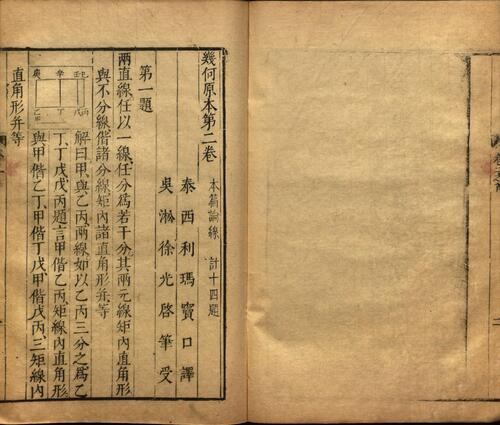 幾何原本第二卷 本篇論線 計十四題
泰西利瑪竇口譯
吳淞徐光啓筆受
第一題
兩直線任以一線任分爲若干分其兩元線矩內直角形
與不分線偕諸分線矩內諸直角形并等
解曰甲與乙丙兩線如以乙丙三分之爲乙
丁丁戊戊丙題言甲偕乙丙矩線內直角形
與甲偕乙丁甲偕丁戊甲偕戊丙三矩線內
直角形并等
庚 辛 壬
乙 丁 戊 丙